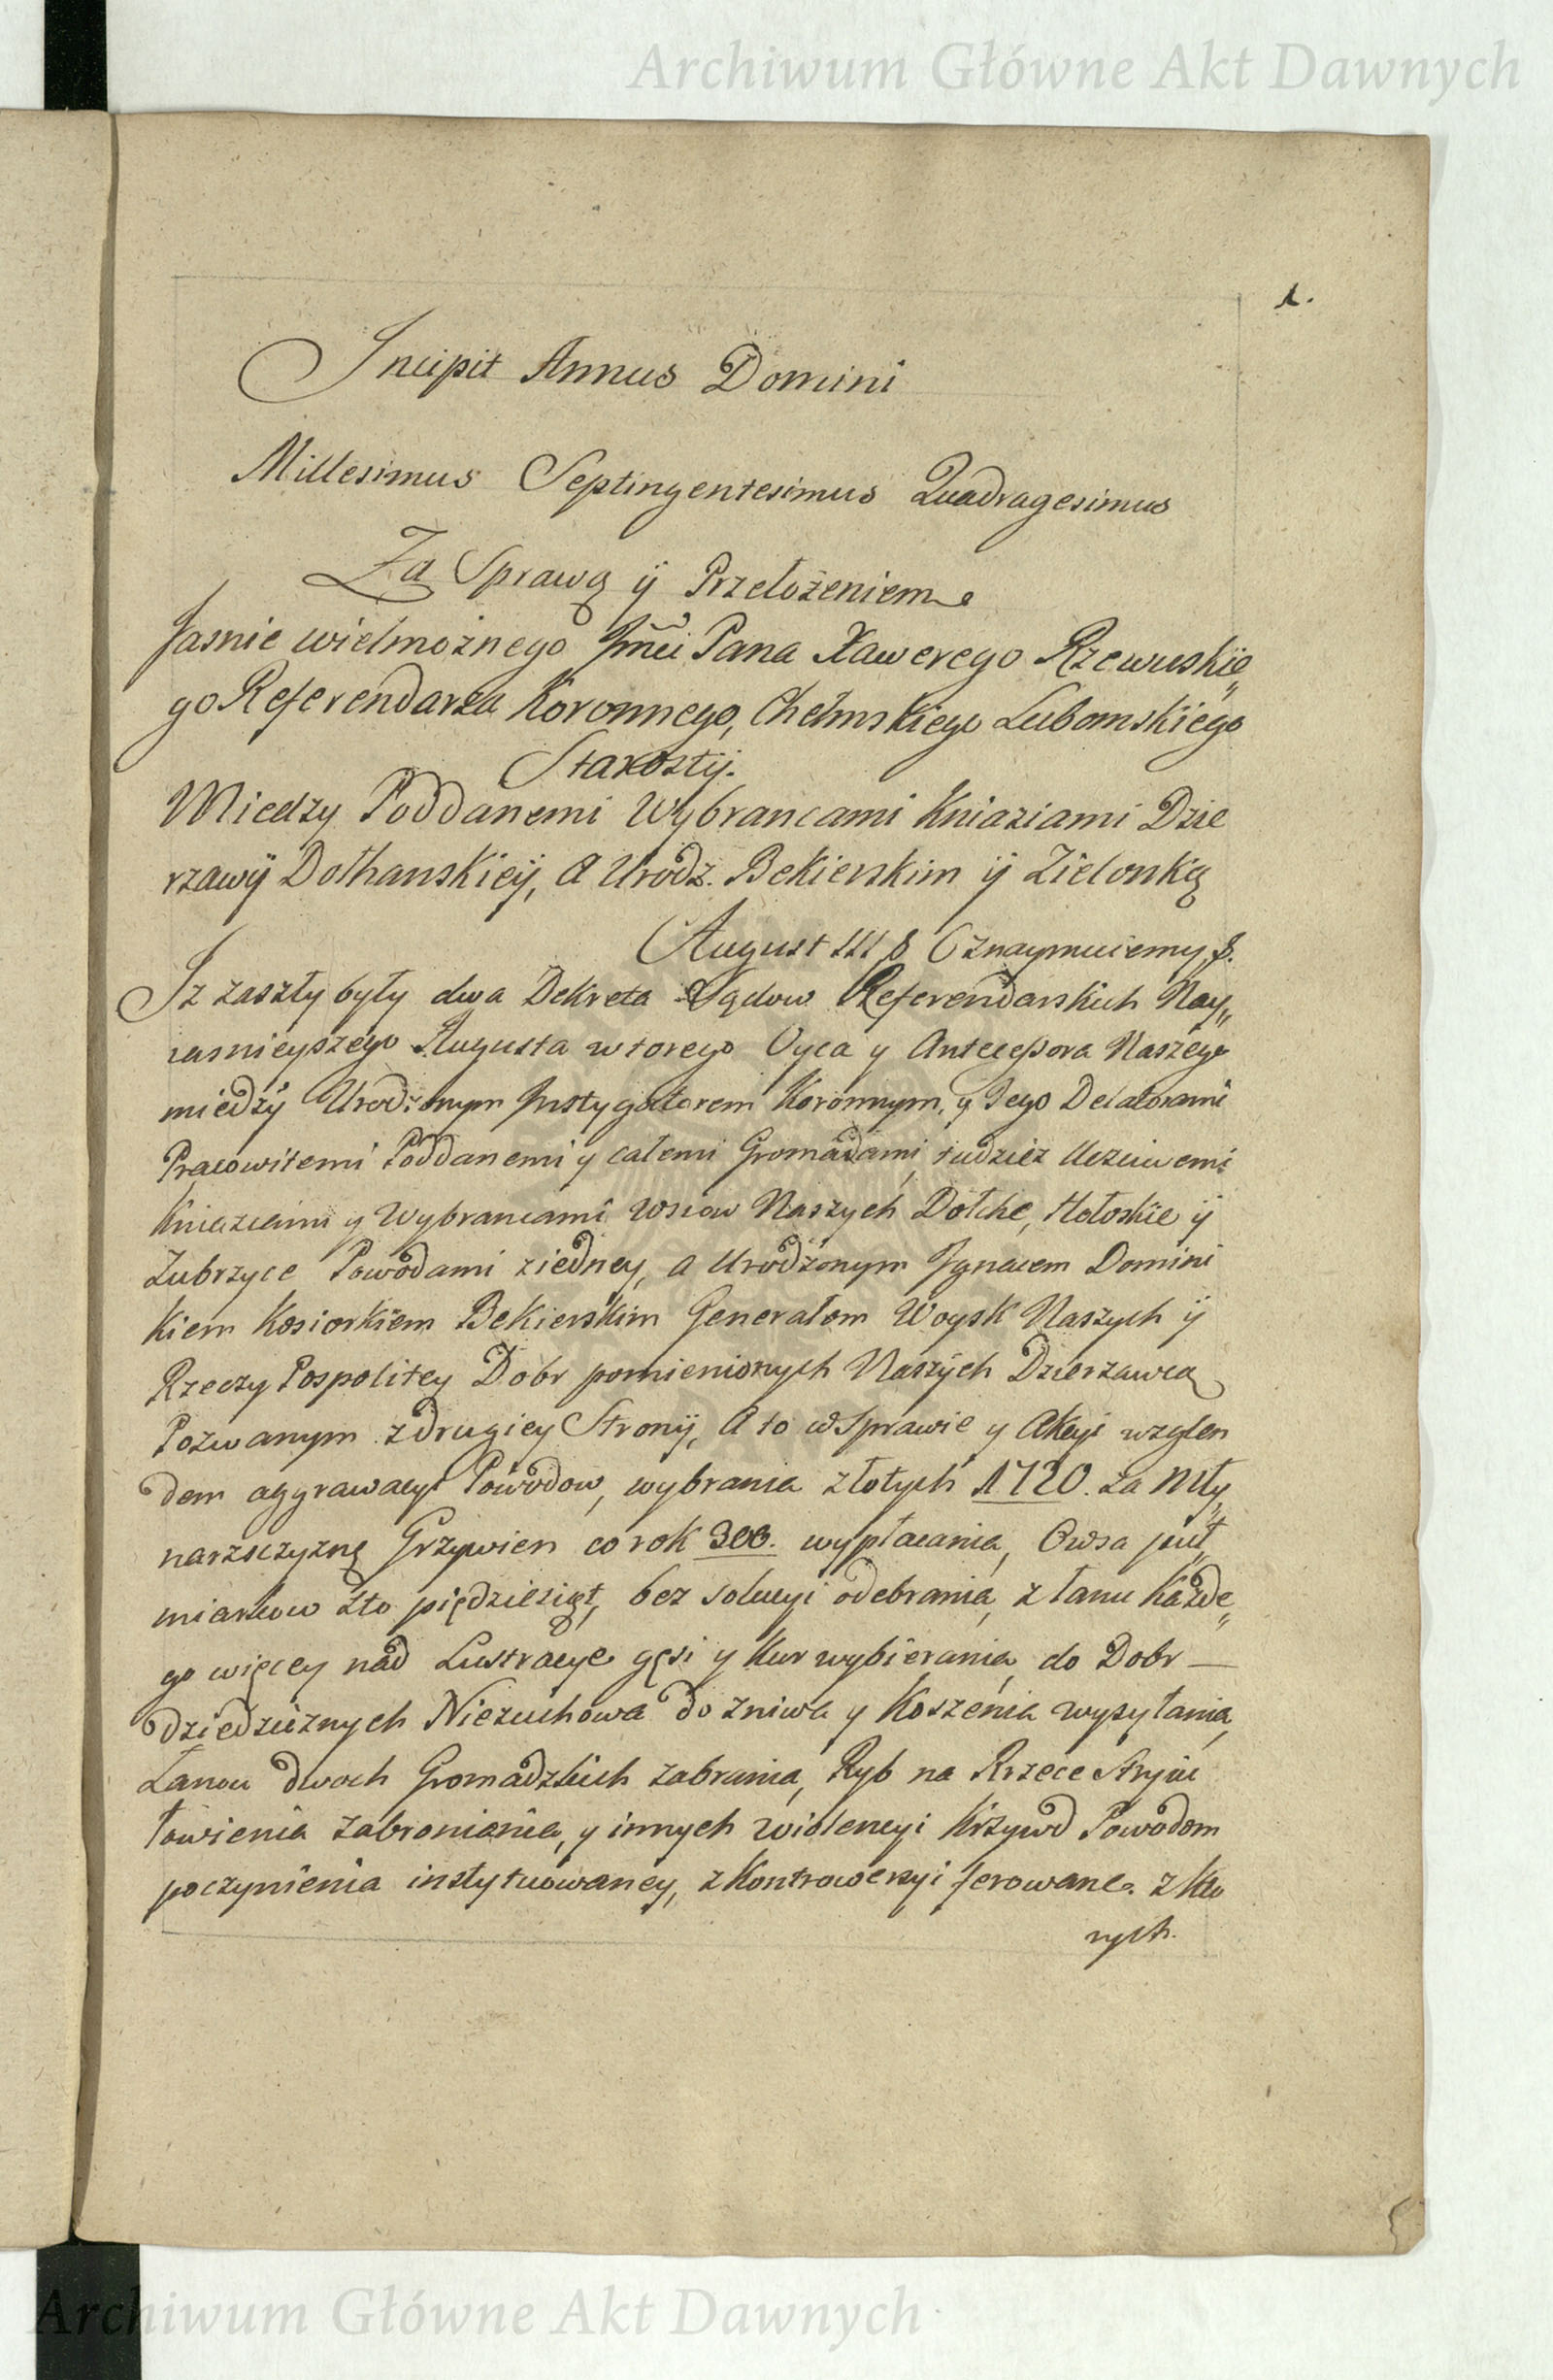 Archiwum Główne Akt Dawnych
1.
Incipit Annus Domini
Millesimus Septingentesimus Quadragesimus
Za Sprawą ÿ Przełożeniem
Jasnie wielmożnego Jmci Pana Xawerego Rzewuskie„
go Referendarza Koronnego, Chełmskiego Lubomskiego
Starosty.
Miedzy Poddanemi Wybrancami Kniaziami Dzie
rzawÿ Dołhanskieÿ, a Urodz. Bekierskim ÿ Zielonką
August III & Oznaymuiemy &.
Iz zaszły były dwa Dekreta Sądow Referendarskich Nay„
iasnieyszego Augusta wtorego Oyca y Antecessora Naszego
miedzÿ Urodzonym Instygatorem Koronnym, y Jego Delatorami
Pracowitemi Poddanemi y całemi Gromadami, tudziez Uczciwemi
Kniaziami y Wybrancami Wsiow Naszych Dołhe, Hołoskie ÿ
Zubrzyce Powodami ziedney, a Urodzonym Ignacem Domini
kiem Kosiorkiem Bekierskim Generałem Woysk Naszych ÿ
Rzeczy Pospolitey Dobr pomienionych Naszÿch Dzierzawcą
Pozwanym zdrugiey Stronÿ, A to w Sprawie y Akcyi wzglen
dem aggrawacyi Powodow, wybrania złotych 1720. za Mły„
narzsczyznę Grzywien corok 300. wypłacania, Owsa puł„
miarkow sto piędziesiąt, bez solucyi odebrania, z łanu Kazde„
go więcey nad Lustracye gęsi y kur wybierania, do Dobr —
dziedzicznych Niezuchowa do zniwa y Koszenia wysyłania,
Łanow dwoch Gromadzkich zabrania, Ryb na Rzece Stryiu
łowienia zabroniania, y innych wiolencyi Krzywd Powodom
poczynienia instytuowaney, z Kontrowersyi ferowane. z Kto
rych.
Archiwum Główne Akt Dawnych